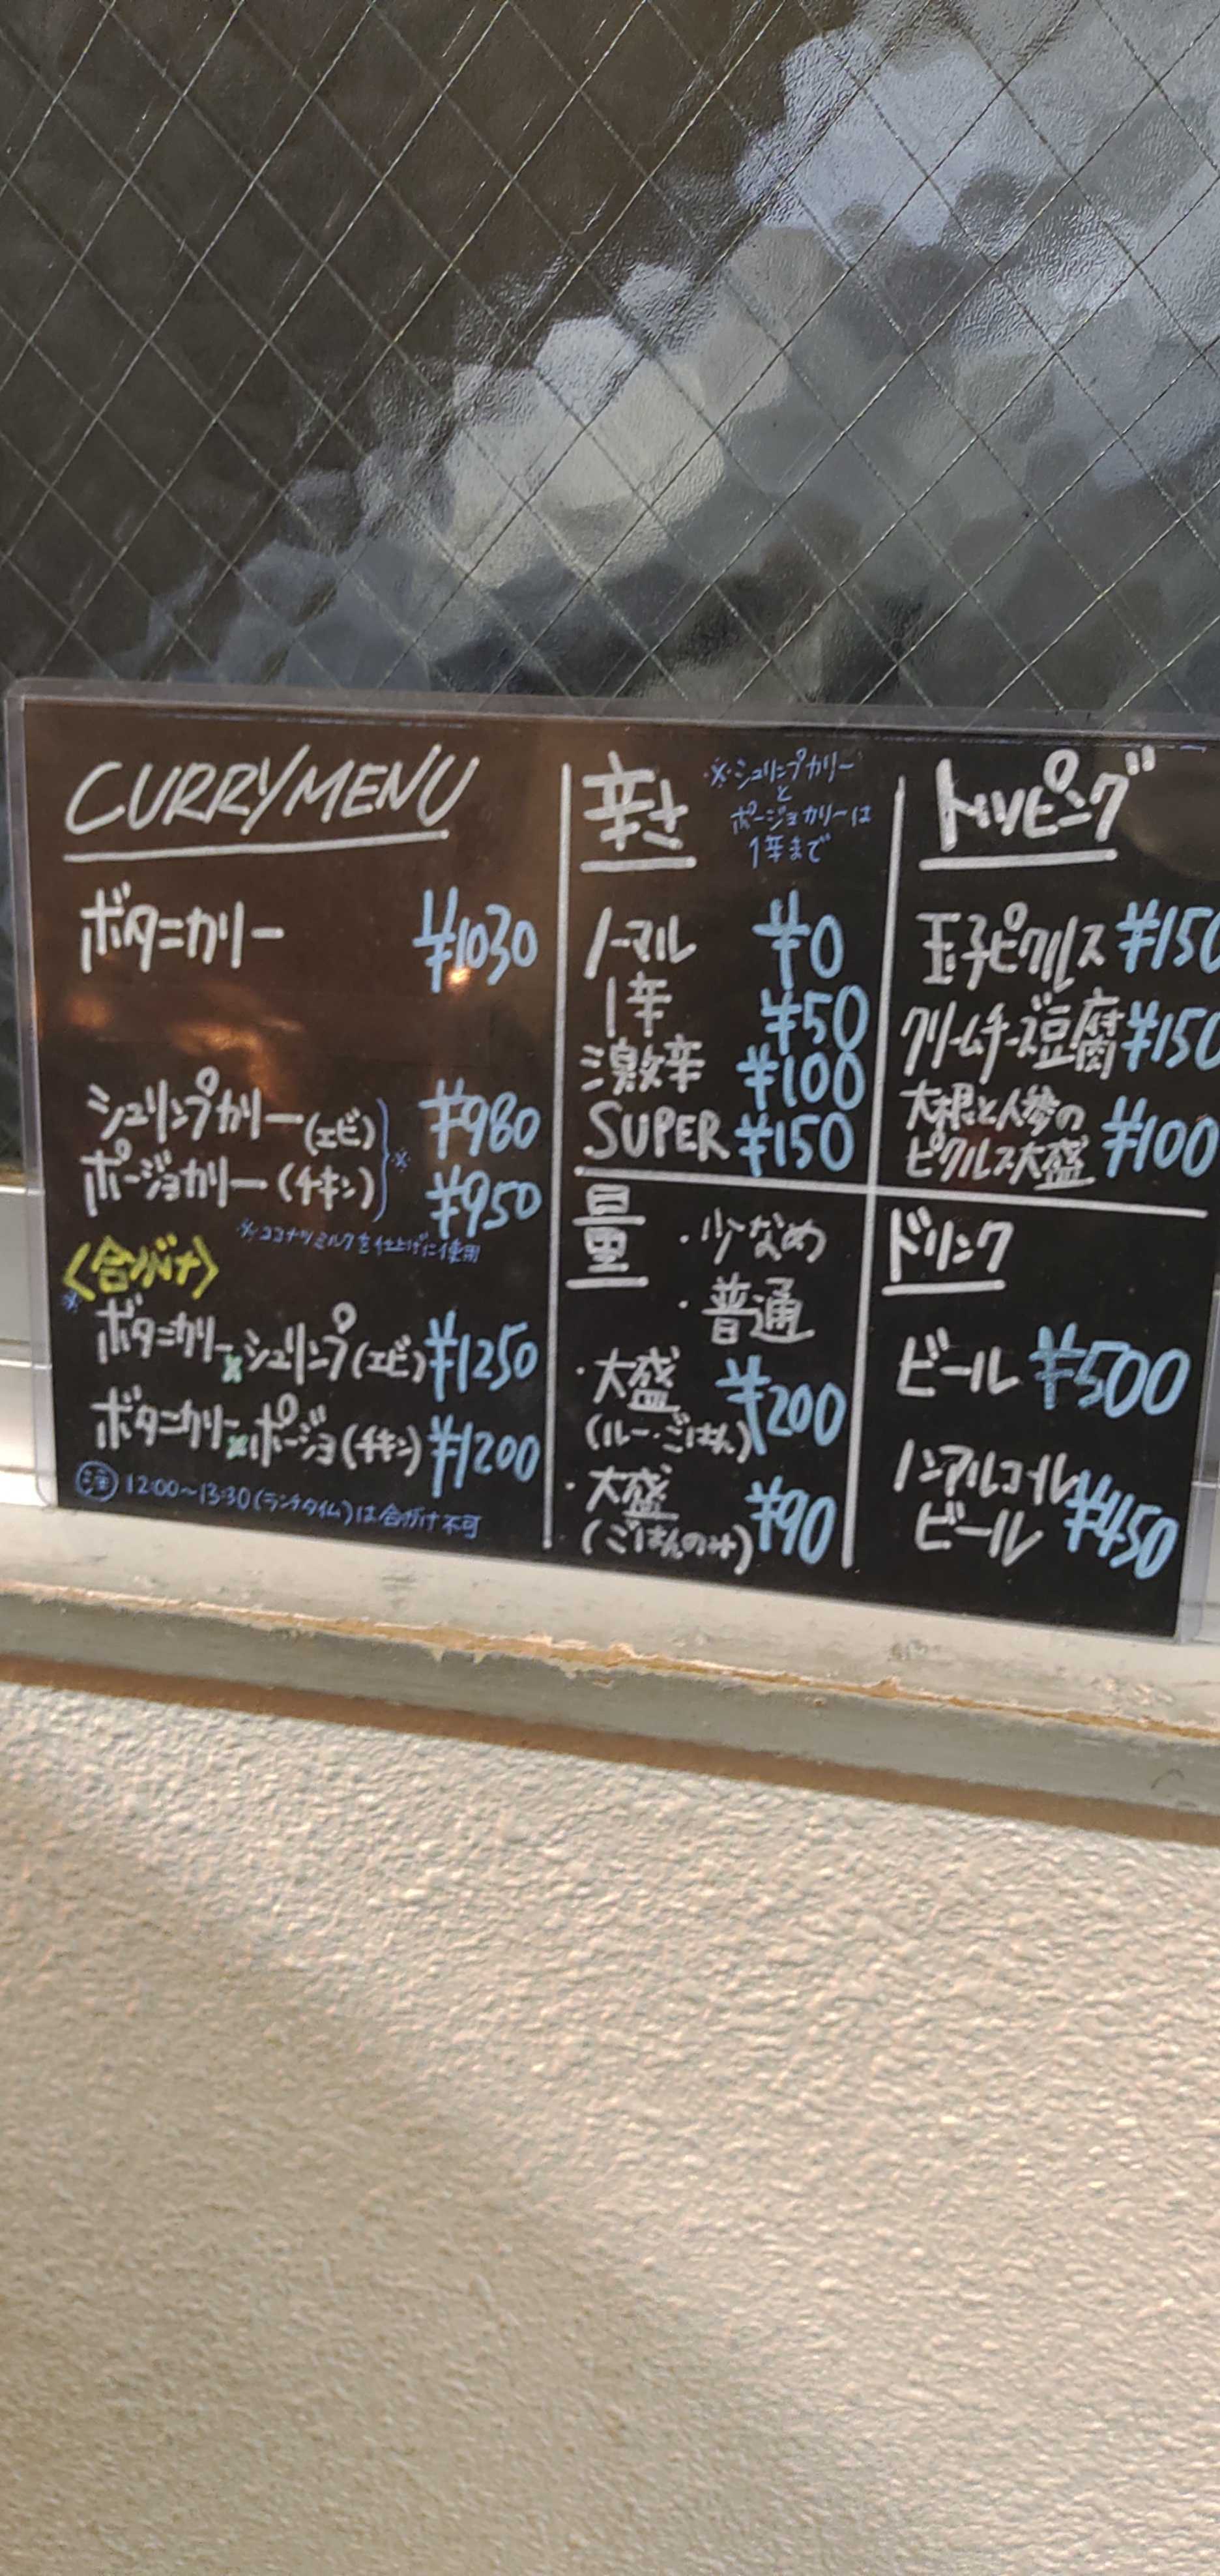 CURRY MENU
ボタニカリー ¥1030
シュリンプカリー(エビ) ※ ¥980
ポージョカリー(チキン) ¥950
※ココナツミルクを仕上げに使用
〈合がけ〉
※
ボタニカリー×シュリンプ(エビ) ¥1250
ボタニカリー×ポージョ(チキン) ¥1200
注 12:00〜13:30(ランチタイム)は合がけ不可
辛さ
※シュリンプカリー
と
ポージョカリーは
1辛まで
ノーマル ¥0
1辛 ¥50
激辛 ¥100
SUPER ¥150
量
・少なめ
・普通
・大盛 ¥200
(ルー・ごはん)
・大盛 ¥90
(ごはんのみ)
トッピング
玉子ピクルス ¥150
クリームチーズ豆腐 ¥150
大根と人参の
ピクルス大盛 ¥100
ドリンク
ビール ¥500
ノンアルコール
ビール ¥450